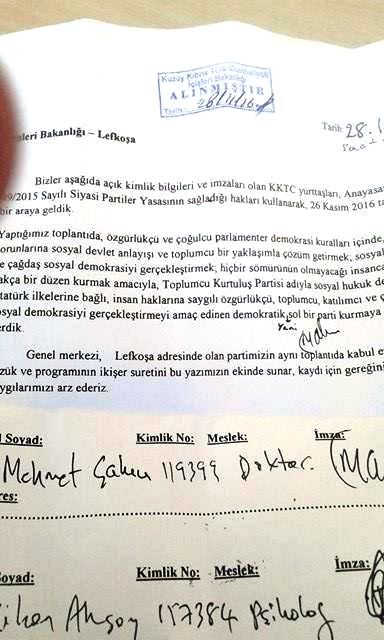 Kuzey Kıbrıs Türk Cumhuriyeti
İçişleri Bakanlığı
ALINMIŞTIR
Tarih: 28/11/16
leri Bakanlığı – Lefkoşa
Tarih 28.
Bizler aşağıda açık kimlik bilgileri ve imzaları olan KKTC yurttaşları, Anayasa
9/2015 Sayılı Siyasi Partiler Yasasının sağladığı hakları kullanarak, 26 Kasım 2016 ta
bir araya geldik.
Yaptığımız toplantıda, özgürlükçü ve çoğulcu parlamenter demokrasi kuralları içinde,
orunlarına sosyal devlet anlayışı ve toplumcu bir yaklaşımla çözüm getirmek; sosyal
ve çağdaş sosyal demokrasiyi gerçekleştirmek; hiçbir sömürünün olmayacağı insanca
akça bir düzen kurmak amacıyla, Toplumcu Kurtuluş Partisi adıyla sosyal hukuk de
tatürk ilkelerine bağlı, insan haklarına saygılı özgürlükçü, toplumcu, katılımcı ve ç
osyal demokrasiyi gerçekleştirmeyi amaç edinen demokratik sol bir parti kurmaya
erdik.
Yeni
Genel merkezi, Lefkoşa adresinde olan partimizin aynı toplantıda kabul e
zük ve programının ikişer suretini bu yazımızın ekinde sunar, kaydı için gereğini
ygılarımızı arz ederiz.
Soyad: Kimlik No: Meslek: İmza:
Mehmet Çakıcı 119399 Doktor.
res:
Soyad: Kimlik No: Meslek: İmza:
Aksoy 157384 Psikolog